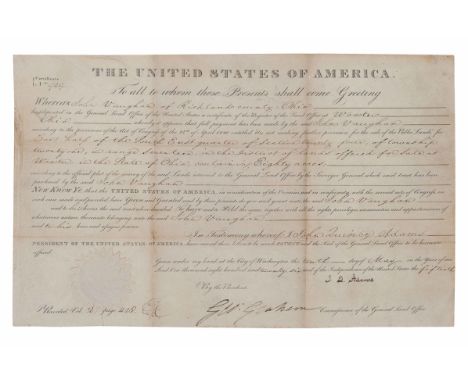 Certificate
No. 729
THE UNITED STATES OF AMERICA.
To all to whom these Presents shall come Greeting
Whereas John Vaughan of Richland county, Ohio
has deposited in the General Land Office of the United States a Certificate of the Register of the Land Office at Wooster
Ohio whereby it appears that full payment has been made by the said John Vaughan
according to the provisions of the Act of Congress of the of April 1820 entitled An act making further provision for the sale of the Public Lands for
East half of the South East quarter of Section twenty five, of township
twenty range in the District of Lands offered for Sale at
Wooster in the State of Ohio containing Eighty acres
according to the official plat of the survey of the said Lands returned to the General Land Office by the Surveyor General which said tract has been
purchased by the said John Vaughan
NOW KNOW YE that the UNITED STATES OF AMERICA, in consideration of the Premises and in conformity with the several acts of Congress in
such case made and provided have Given and Granted and by these presents do give and grant unto the said John Vaughan
and to his heirs the said tract above described To have and to Hold the same together with all the rights privileges immunities and appurtenances of
whatsoever nature thereunto belonging unto the said John Vaughan
and to his heirs and assigns forever.
In Testimony whereof I John Quincy Adams
PRESIDENT OF THE UNITED STATES OF AMERICA have caused these Letters to be made PATENT and the Seal of the General Land Office to be hereunto
affixed.
Given under my hand at the City of Washington the tenth day of May in the Year of our
Lord One thousand eight hundred and twenty six and of the Independence of the United States the fiftieth
By the President J. Q. Adams
Geo. Graham Commissioner of the General Land Office.
Recorded Vol. page